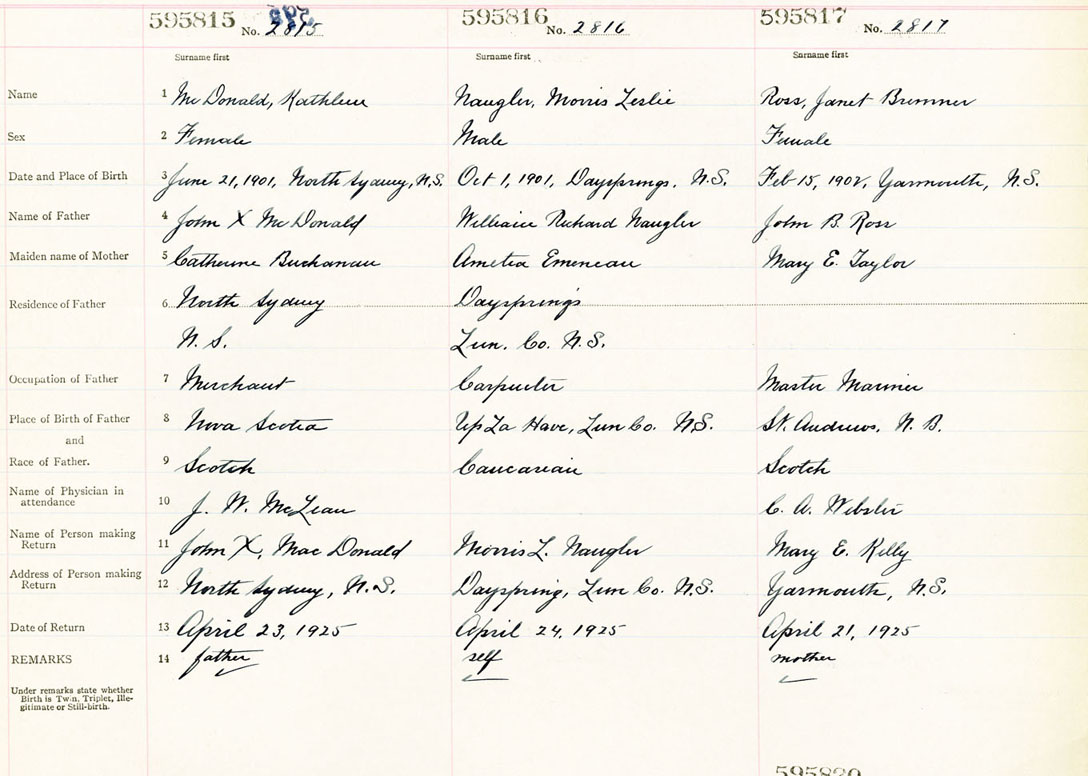 595815 No. 2815 595816 No. 2816 595817 No. 2817
Surname first Surname first Surname first
Name 1 McDonald, Kathleen Naugler, Morris Leslie Ross, Janet Bremner
Sex 2 Female Male Female
Date and Place of Birth 3 June 21, 1901, North Sydney, N.S. Oct 1, 1901, Daysprings, N.S. Feb 15, 1902, Yarmouth, N.S.
Name of Father 4 John X McDonald William Richard Naugler John B. Ross
Maiden name of Mother 5 Catherine Buchanan Amelia Emeneau Mary E. Taylor
Residence of Father 6 North Sydney Daysprings
N. S. Lun. Co. N.S.
Occupation of Father 7 Merchant Carpenter Master Mariner
Place of Birth of Father 8 Nova Scotia Up La Have, Lun Co. N.S. St. Andrews, N. B.
and
Race of Father. 9 Scotch Caucasian Scotch
Name of Physician in
attendance 10 J. W. McLean C. A. Webster
Name of Person making
Return 11 John X, MacDonald Morris L. Naugler Mary E. Kelly
Address of Person making
Return 12 North Sydney, N.S. Dayspring, Lun Co. N.S. Yarmouth, N.S.
Date of Return 13 April 23, 1925 April 24, 1925 April 21, 1925
REMARKS 14 father self mother
Under remarks state whether
Birth is Twin, Triplet, Ille-
gitimate or Still-birth.